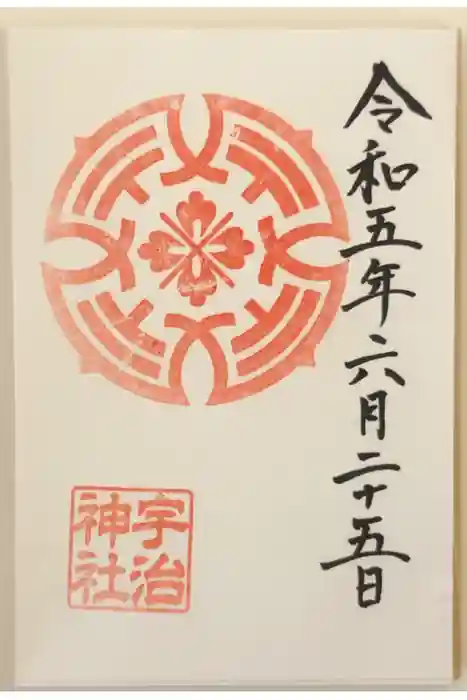 令和五年六月二十五日
宇治
神社